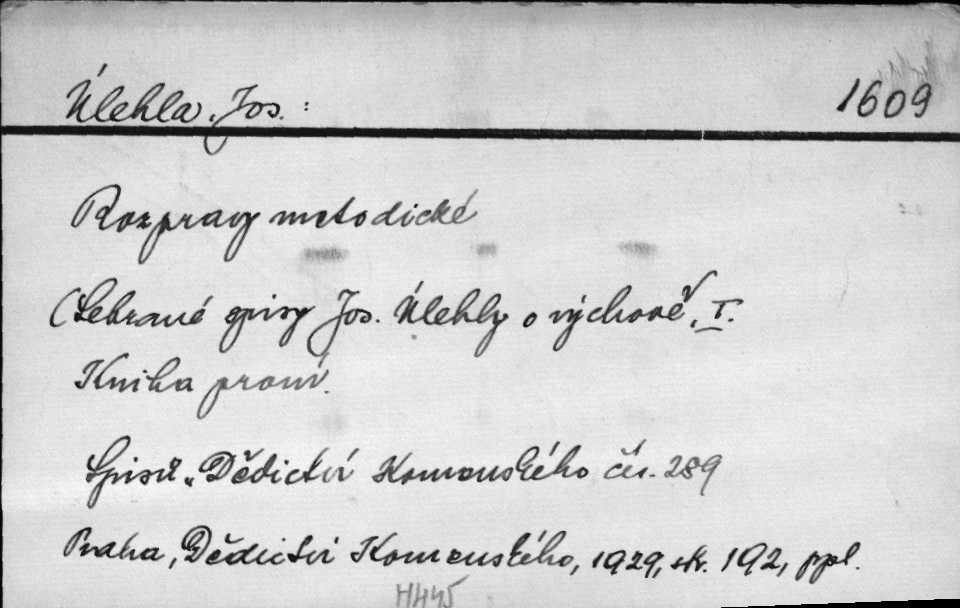 Úlehla, Jos. :
1609
Rozpravy metodické
(Sebrané spisy Jos. Úlehly o výchově, I.
Kniha první.
Spisů „Dědictví Komenského čís. 289
Praha, Dědictví Komenského, 1929, str. 192, ppl.
H445